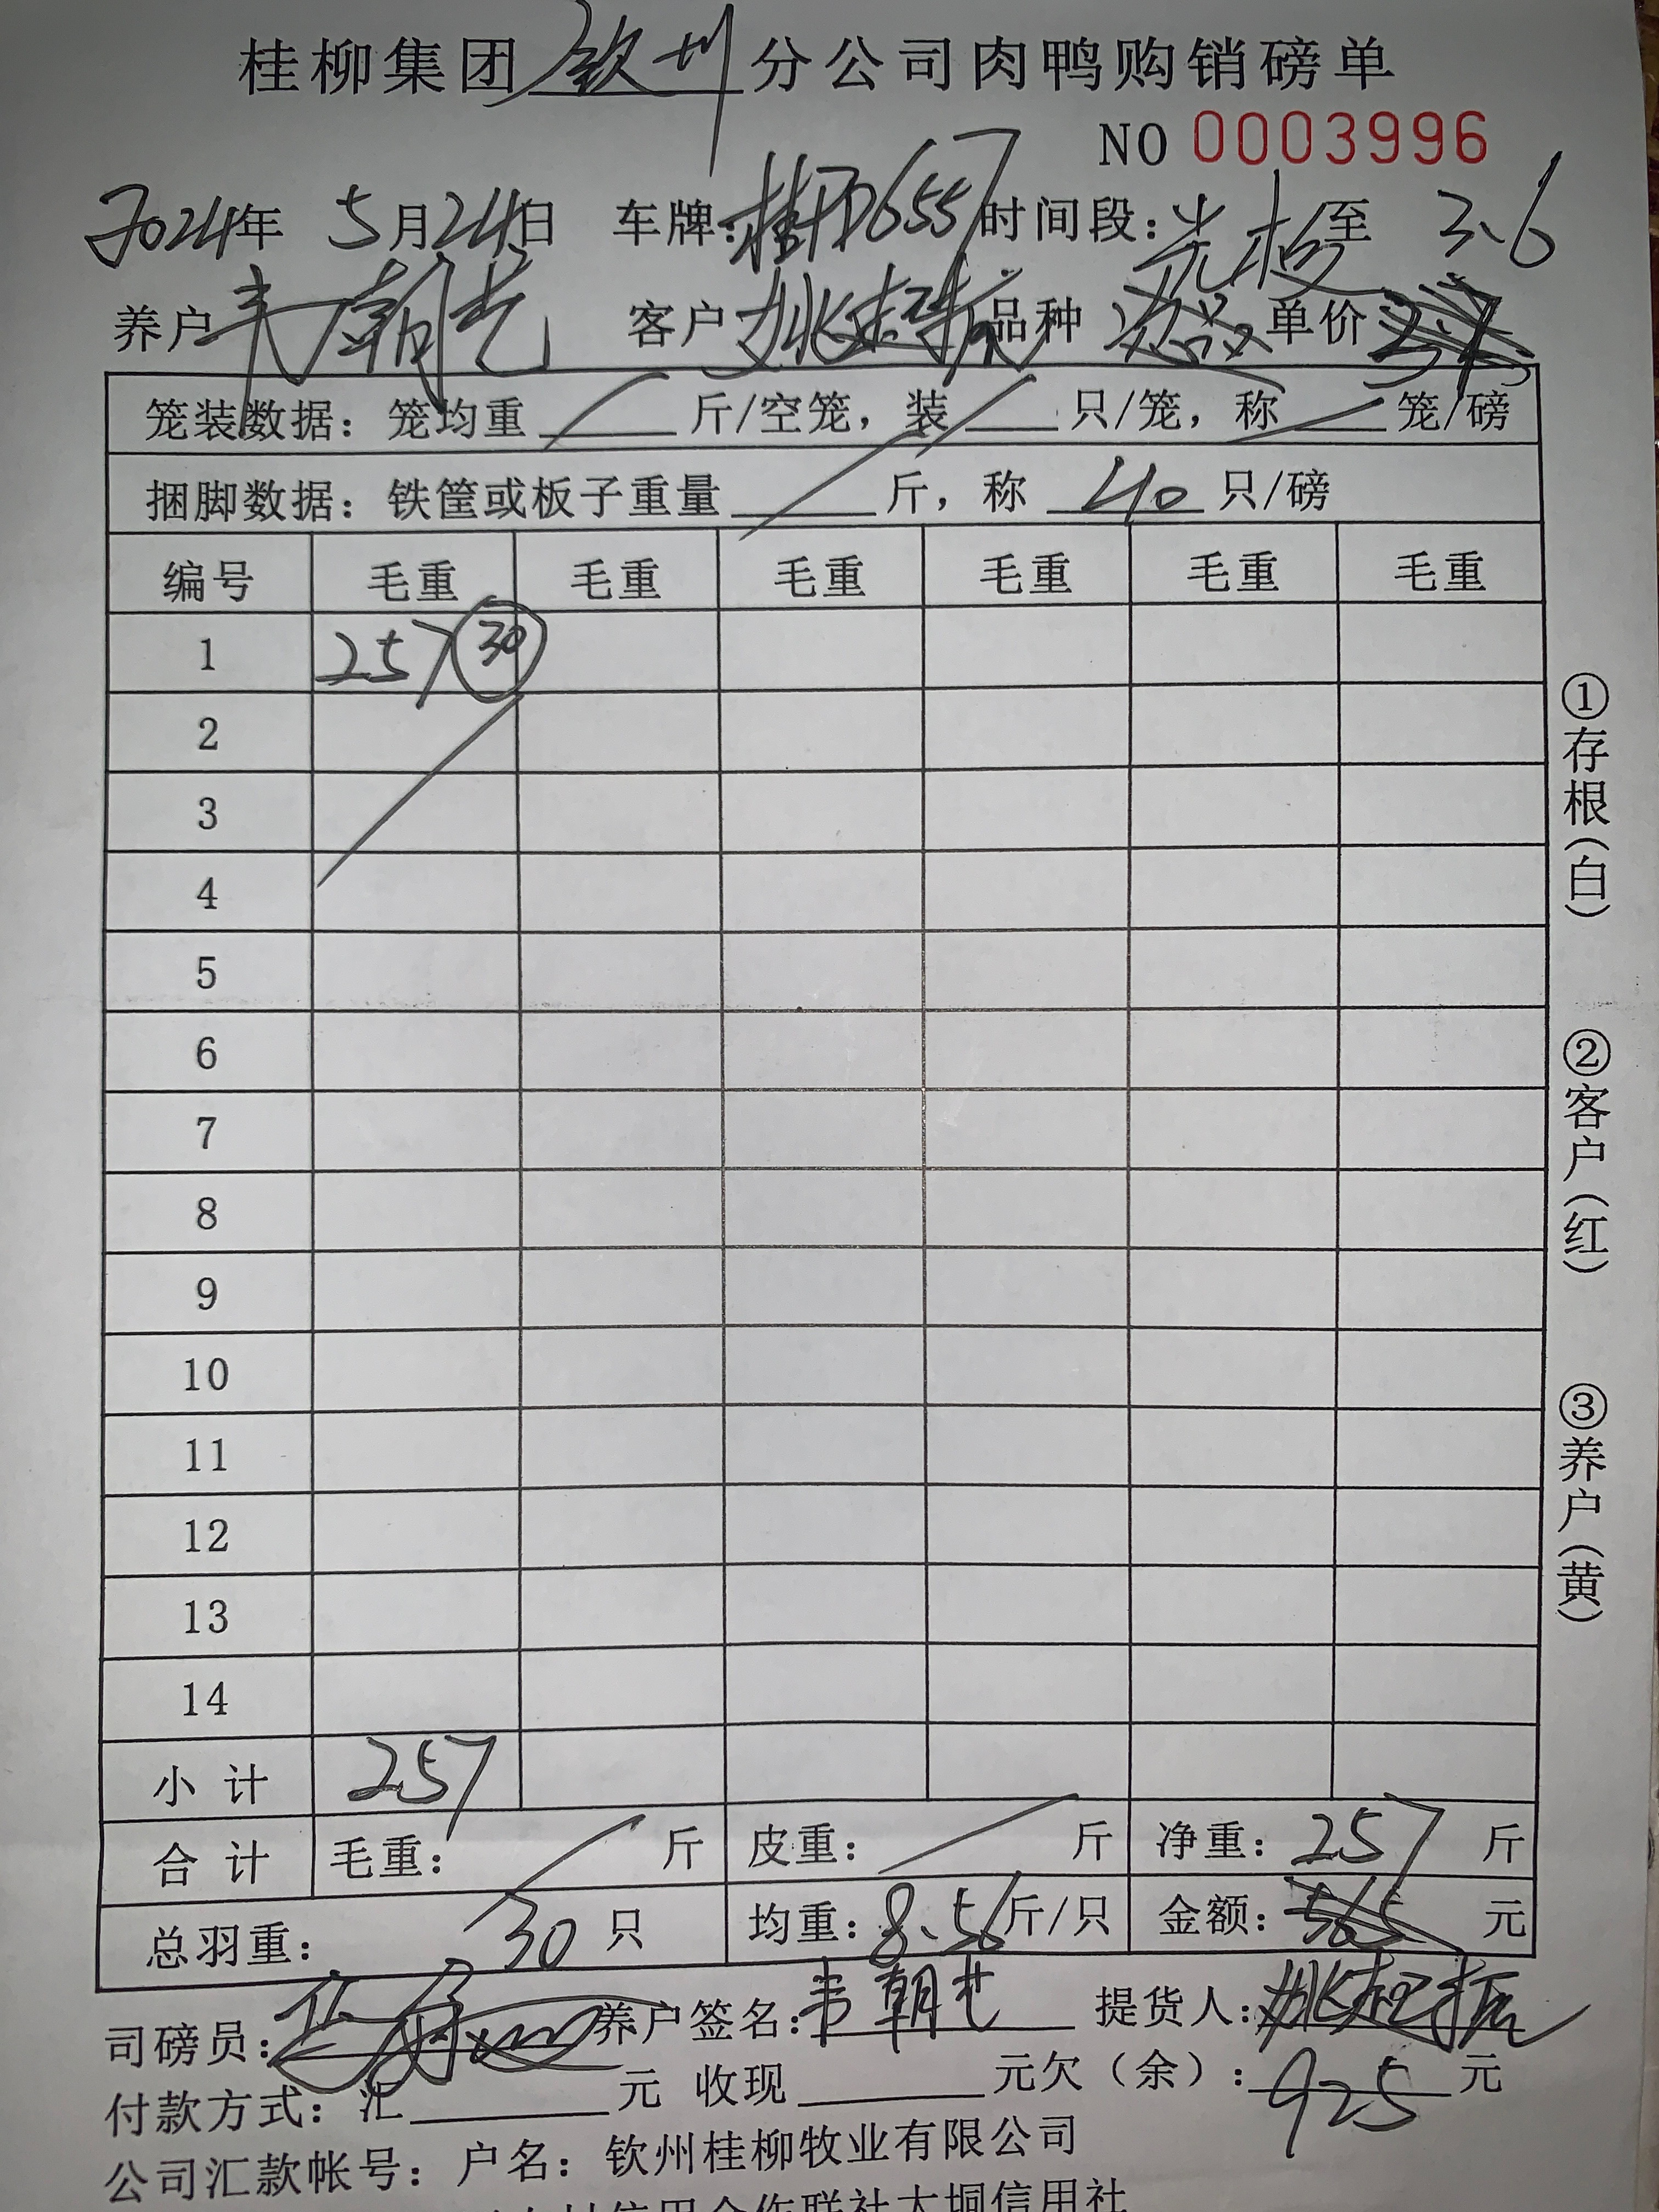 桂柳集团 钦州 分公司肉鸭购销磅单
NO 0003996
2024年 5月24日 车牌:桂 D6557 时间段: 至 3.6
养户 韦朝艺 客户 姚起振 品种 单价
笼装数据: 笼均重 斤/空笼, 装 只/笼, 称 笼/磅
捆脚数据: 铁筐或板子重量 斤, 称 40 只/磅
编号 毛重 毛重 毛重 毛重 毛重 毛重
1 257 30
2
3
4
5
6
7
8
9
10
11
12
13
14
小计 257
合计 毛重: 斤 皮重: 斤 净重: 257 斤
总羽重: 30 只 均重: 8.56 斤/只 金额: 565 元
司磅员: 养户签名: 韦朝艺 提货人: 姚起振
付款方式: 汇 元 收现 元欠(余): 925 元
公司汇款帐号: 户名: 钦州桂柳牧业有限公司
信用合作联社大垌信用社
①存根(白)
②客户(红)
③养户(黄)